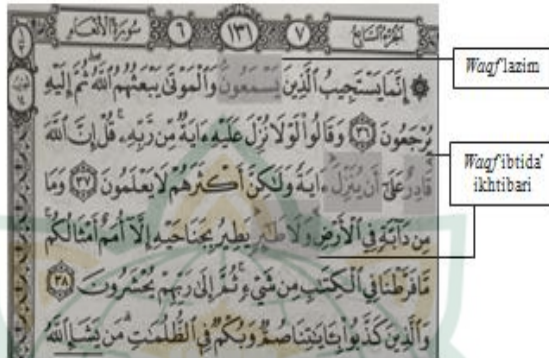 الجزء السابع ٧ ١٣١ ٦ سورة الأنعام
۞ إِنَّمَا يَسْتَجِيبُ الَّذِينَ يَسْمَعُونَ ۘ وَالْمَوْتَىٰ يَبْعَثُهُمُ اللَّهُ ثُمَّ إِلَيْهِ
يُرْجَعُونَ ٣٦ وَقَالُوا لَوْلَا نُزِّلَ عَلَيْهِ ءَايَةٌ مِّن رَّبِّهِۦ ۚ قُلْ إِنَّ اللَّهَ
قَادِرٌ عَلَىٰٓ أَن يُنَزِّلَ ءَايَةً وَلَٰكِنَّ أَكْثَرَهُمْ لَا يَعْلَمُونَ ٣٧ وَمَا
مِن دَآبَّةٍ فِي الْأَرْضِ وَلَا طَٰٓئِرٍ يَطِيرُ بِجَنَاحَيْهِ إِلَّآ أُمَمٌ أَمْثَالُكُم ۚ
مَّا فَرَّطْنَا فِي الْكِتَٰبِ مِن شَيْءٍ ۚ ثُمَّ إِلَىٰ رَبِّهِمْ يُحْشَرُونَ ٣٨
وَالَّذِينَ كَذَّبُوا بِـَٔايَٰتِنَا صُمٌّ وَبُكْمٌ فِي الظُّلُمَٰتِ ۗ مَن يَشَإِ اللَّهُ
Waqf lazim
Waqf ibtida'
ikhtibari